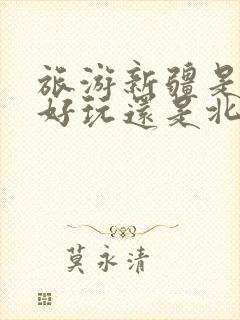 旅游新疆是
好玩還是北
莫永清